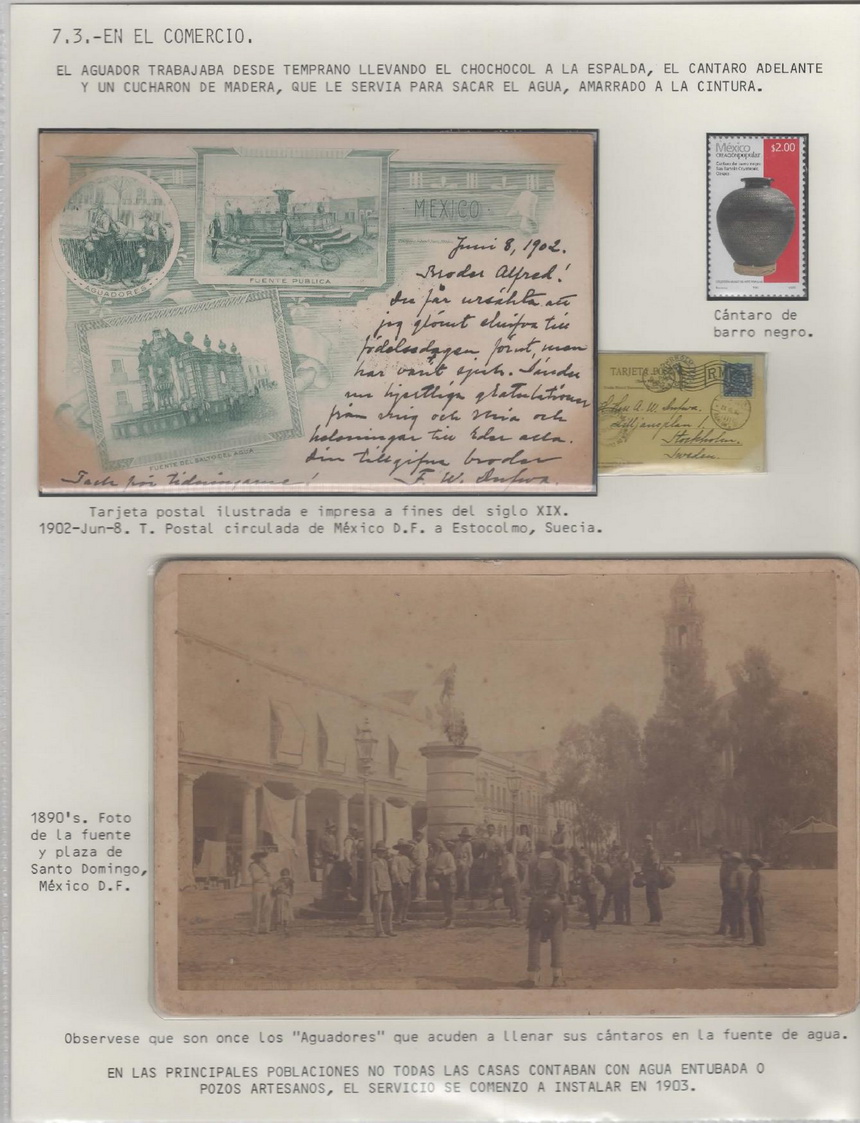 7.3.-EN EL COMERCIO.
EL AGUADOR TRABAJABA DESDE TEMPRANO LLEVANDO EL CHOCHOCOL A LA ESPALDA, EL CANTARO ADELANTE
Y UN CUCHARON DE MADERA, QUE LE SERVIA PARA SACAR EL AGUA, AMARRADO A LA CINTURA.
AGUADORES
FUENTE PUBLICA
MEXICO
FUENTE DEL SALTO DEL AGUA
Juni 8, 1902.
Broder Alfred!
Du får ursäkta att
jag glömt skrifva till
födelsedagen förut, men
har varit sjuk. Sänder
nu hjertliga gratulationer
från mig och Mia och
helsningar till Eder alla.
Din tillgifna broder
F. W.
Tack för tidningarne!
México $2.00
creaciónpopular
Cántaro de barro negro
Cántaro de
barro negro.
TARJETA
A. W.
Lilljansplan 1,
Stockholm.
Sweden.
Tarjeta postal ilustrada e impresa a fines del siglo XIX.
1902-Jun-8. T. Postal circulada de México D.F. a Estocolmo, Suecia.
1890's. Foto
de la fuente
y plaza de
Santo Domingo,
México D.F.
Observese que son once los "Aguadores" que acuden a llenar sus cántaros en la fuente de agua.
EN LAS PRINCIPALES POBLACIONES NO TODAS LAS CASAS CONTABAN CON AGUA ENTUBADA O
POZOS ARTESANOS, EL SERVICIO SE COMENZO A INSTALAR EN 1903.